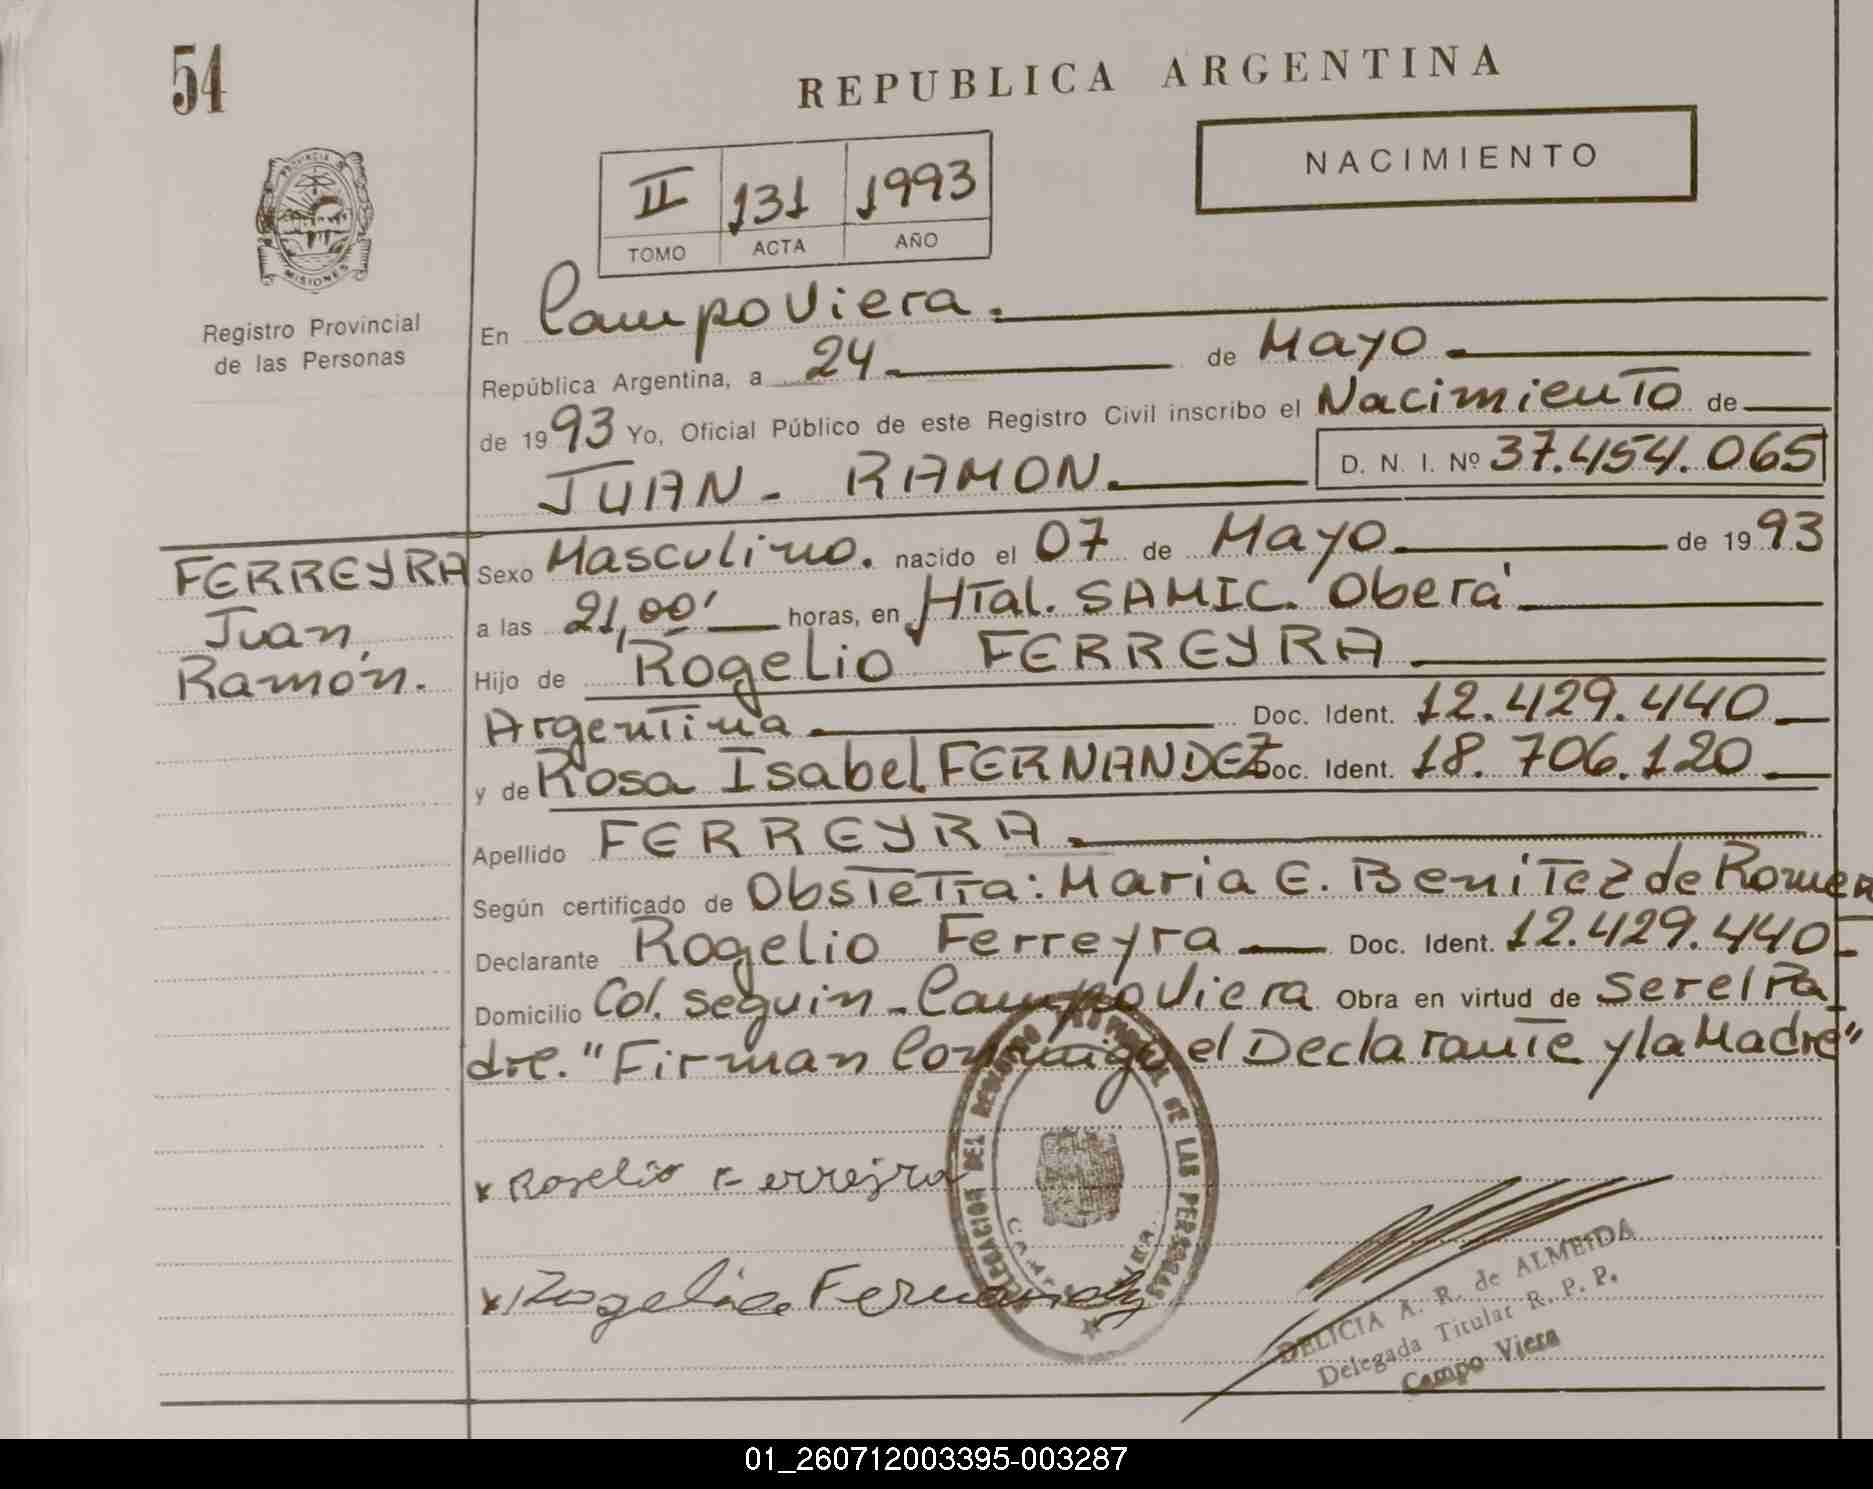 54
REPUBLICA ARGENTINA
NACIMIENTO
II 131 1993
TOMO ACTA AÑO
PROVINCIA DE
MISIONES
Registro Provincial
de las Personas
En Campo Viera.
República Argentina, a 24 de Mayo
de 1993 Yo, Oficial Público de este Registro Civil inscribo el Nacimiento de
JUAN - RAMON. D. N. I. Nº 37.454.065
FERREYRA
Juan
Ramón.
Sexo Masculino. nacido el 07 de Mayo de 1993
a las 21,00' horas, en Htal. SAMIC. Oberá
Hijo de Rogelio FERREYRA
Argentina Doc. Ident. 12.429.440
y de Rosa Isabel FERNANDEZ Doc. Ident. 18.706.120
Apellido FERREYRA.
Según certificado de Obstetra: Maria E. Benitez de Romer
Declarante Rogelio Ferreyra Doc. Ident. 12.429.440
Domicilio Col. Seguin - Campo Viera Obra en virtud de Ser el Pa
dre. "Firman Conmigo el Declarante y la Madre"
DELEGACION DEL REGISTRO PROVINCIAL DE LAS PERSONAS
CAMPO VIERA
x Rogelio Ferreyra
DELICIA A. R. de ALMEIDA
Delegada Titular R. P. P.
Campo Viera
01_260712003395-003287